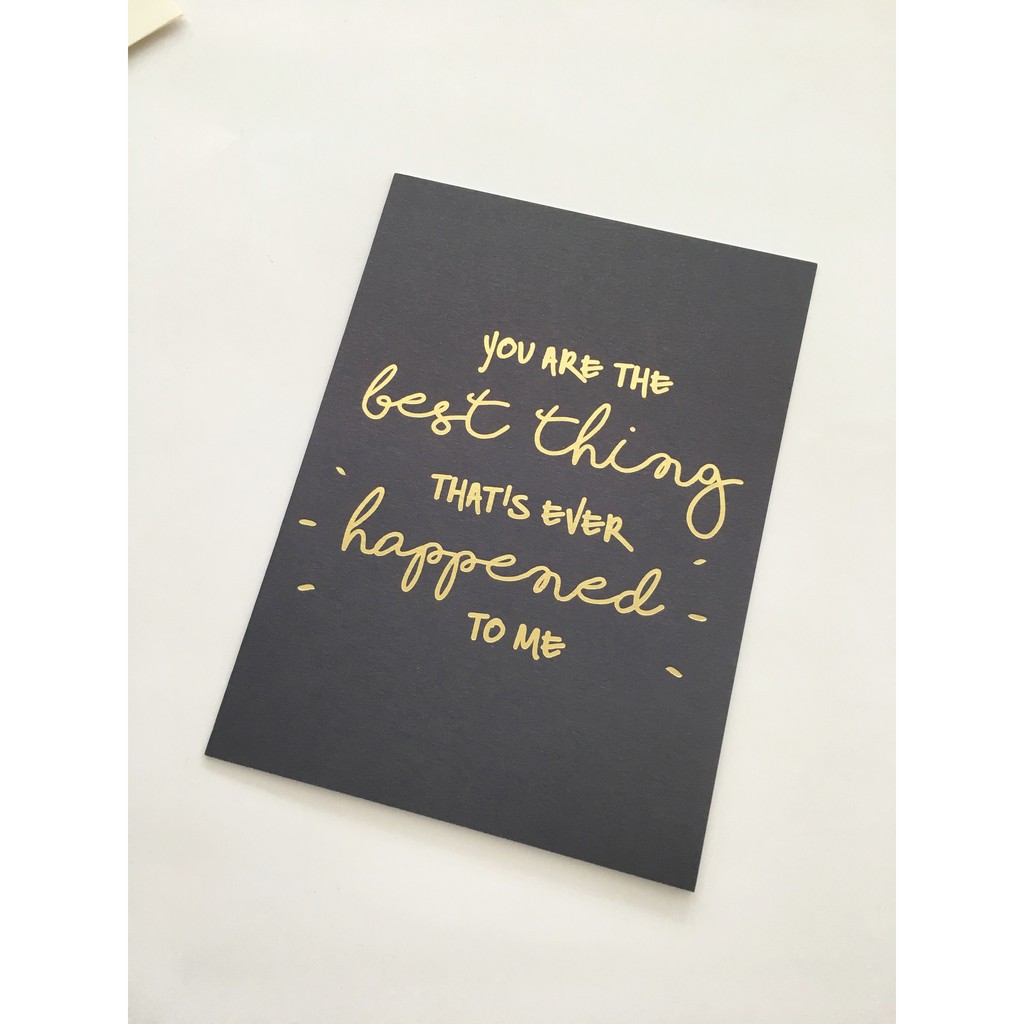 YOU ARE THE
best thing
THAT'S EVER
happened
TO ME